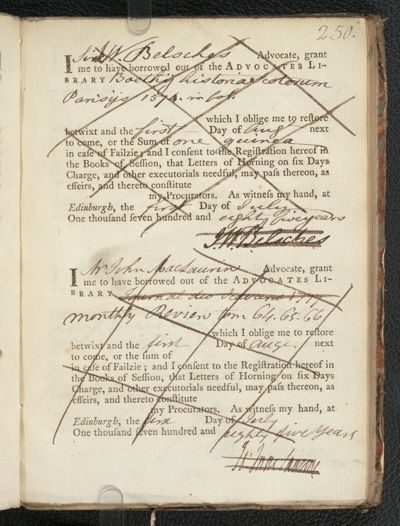 250.
I Sir W. Belsches Advocate, grant
me to have borrowed out of the ADVOCATES LI-
BRARY Boethij historia Scotorum
Parisijs 1574. in fol.
which I oblige me to restore
betwixt and the first Day of Aug next
to come, or the Sum of one guinea
in case of Failzie; and I consent to the Registration hereof in
the Books of Session, that Letters of Horning on six Days
Charge, and other executorials needful, may pass thereon, as
effeirs, and thereto constitute
my Procurators. As witness my hand, at
Edinburgh, the first Day of July
One thousand seven hundred and eighty five years
J. W. Belsches
I Mr John MacLaurin Advocate, grant
me to have borrowed out of the ADVOCATES LI-
BRARY Journal des Scavans
monthly Review from 64. 65. 66
which I oblige me to restore
betwixt and the first Day of augt. next
to come, or the sum of
in case of Failzie; and I consent to the Registration hereof in
the Books of Session, that Letters of Horning on six Days
Charge, and other executorials needful, may pass thereon, as
effeirs, and thereto constitute
my Procurators. As witness my hand, at
Edinburgh, the first Day of July
One thousand seven hundred and eighty five Years